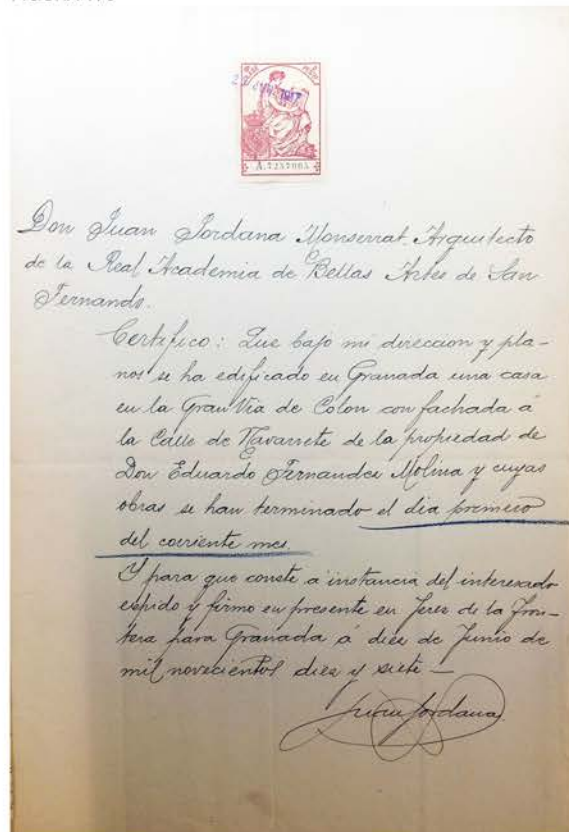 A.7257065
Don Juan Jordana Monserrat Arquitecto
de la Real Academia de Bellas Artes de San
Fernando.
Certifico: Que bajo mi direccion y pla-
nos se ha edificado en Granada una casa
en la Gran Via de Colon con fachada á
la Calle de Navarrete de la propiedad de
Don Eduardo Fernandez Molina y cuyas
obras se han terminado el dia primero
del corriente mes.
Y para que conste a instancia del interesado
expido y firmo en presente en Jerez de la Fron-
tera para Granada á diez de Junio de
mil novecientos diez y siete —
Juan Jordana